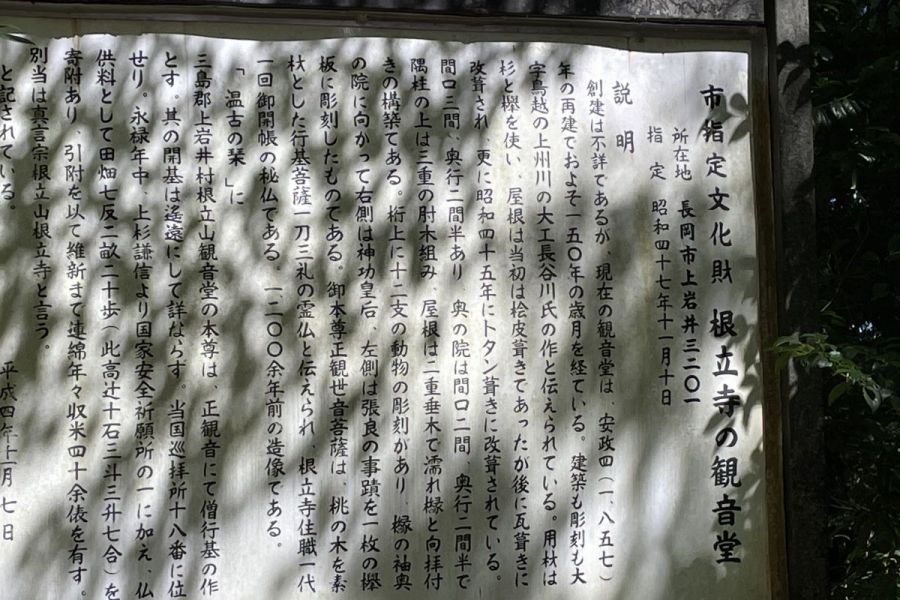 市指定文化財 根立寺の観音堂
所在地 長岡市上岩井三二〇一
指定 昭和四十七年十一月十日
説明
創建は不詳であるが、現在の観音堂は、安政四(一八五七)
年の再建でおよそ一五〇年の歳月を経ている。建築も彫刻も大
字鳥越の上州川の大工長谷川氏の作と伝えられている。用材は
杉と欅を使い、屋根は当初は桧皮葺きてあったが後に瓦葺きに
改葺され、更に昭和四十五年にトタン葺きに改葺されている。
間口三間、奥行二間半あり 奥の院は間口二間、奥行二間半で
隅柱の上は三重の肘木組み、屋根は二重垂木で濡れ縁と向拝付
きの構築てある。桁上に十二支の動物の彫刻があり 縁の袖奥
の院に向かって右側は神功皇后、左側は張良の事蹟を一枚の欅
板に彫刻したものてある。御本尊正観世音菩薩は、桃の木を素
材とした行基菩薩一刀三礼の霊仏と伝えられ、根立寺住職一代
一回御開帳の秘仏である。一二〇〇余年前の造像てある。
「温古の栞」に
三島郡上岩井村根立山観音堂の本尊は、正観音にて僧行基の作
とす。其の開基は遙遠にして詳ならず。当国巡拝所十八番に位
せり。永禄年中、上杉謙信より国家安全祈願所の一に加え、仏
供料として田畑七反二畝二十歩(此高辻十石三斗三升七合)を
寄附あり、引附を以て維新まて連綿年々収米四十余俵を有す。
別当は真言宗根立山根立寺と言う。
と記されている。
平成四年十一月七日